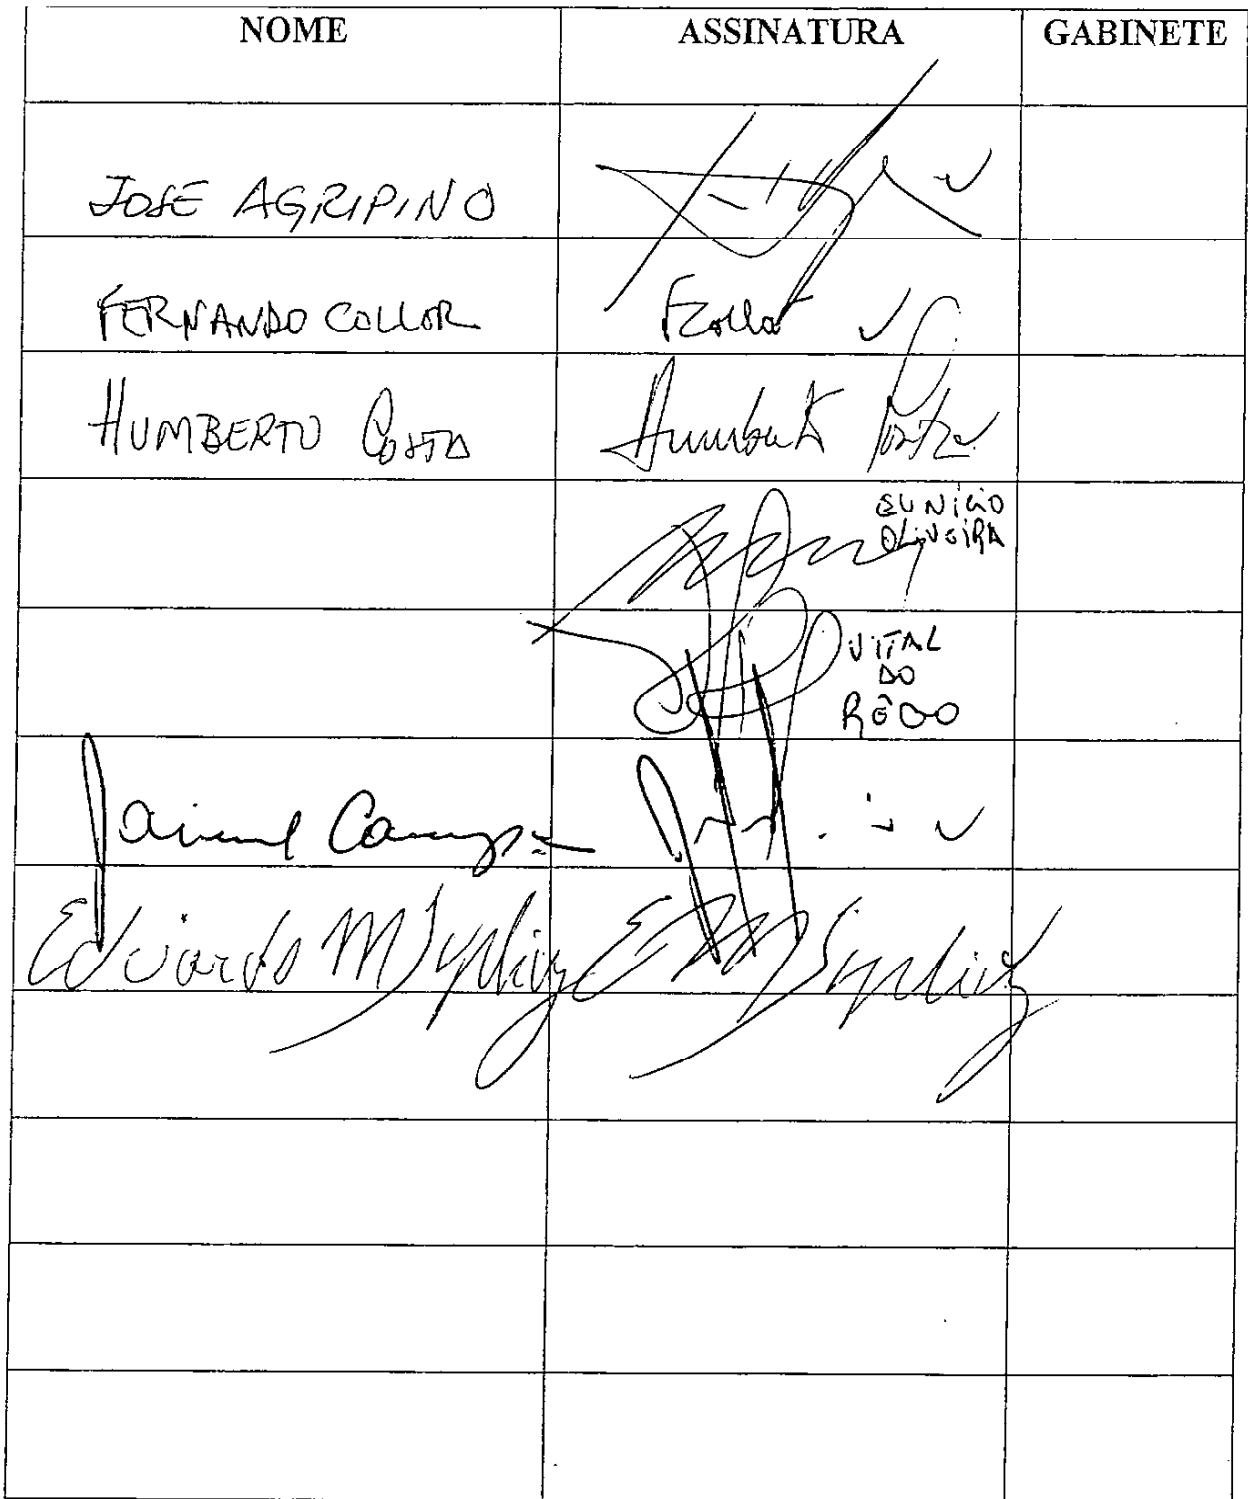 NOME ASSINATURA GABINETE
JOSE AGRIPINO
FERNANDO COLLOR FCollor
HUMBERTO COSTA Humberto Costa
EUNÍCIO
OLIVEIRA
VITAL
DO
RÊGO
Jaime Campos
Eduardo M Suplicy E. M Suplicy